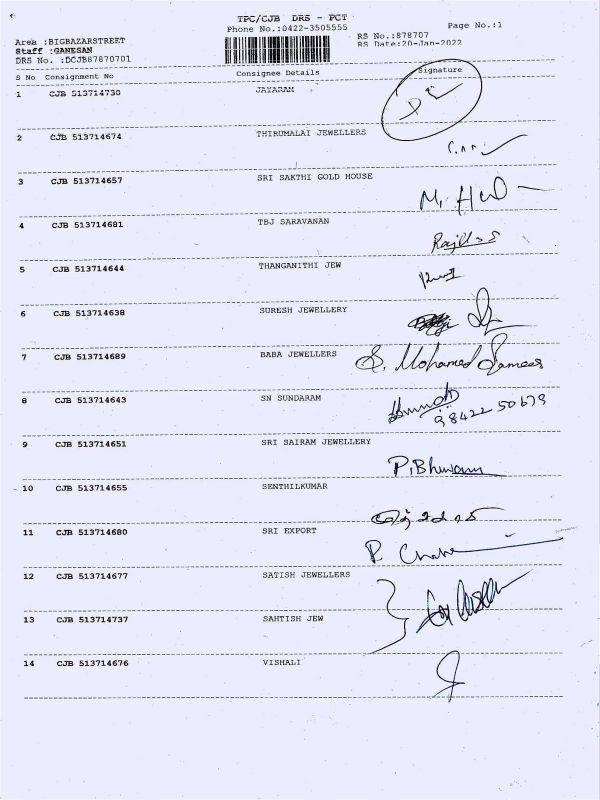 TPC/CJB DRS - PCT
Phone No.:0422-3505555
Page No.:1
Area :BIGBAZARSTREET
RS No.:878707
Staff :GANESAN
RS Date:20-Jan-2022
DRS No. :DCJB87870701
S No Consignment No Consignee Details Signature
1 CJB 513714730 JAYARAM
2 CJB 513714674 THIRUMALAI JEWELLERS
3 CJB 513714657 SRI SAKTHI GOLD HOUSE
4 CJB 513714681 TBJ SARAVANAN
5 CJB 513714644 THANGANITHI JEW
6 CJB 513714638 SURESH JEWELLERY
7 CJB 513714689 BABA JEWELLERS S. Mohamed Sameer
8 CJB 513714643 SN SUNDARAM
9842250679
9 CJB 513714651 SRI SAIRAM JEWELLERY
P. Bhuvana
10 CJB 513714655 SENTHILKUMAR
11 CJB 513714680 SRI EXPORT
12 CJB 513714677 SATISH JEWELLERS
13 CJB 513714737 SAHTISH JEW
14 CJB 513714676 VISHALI